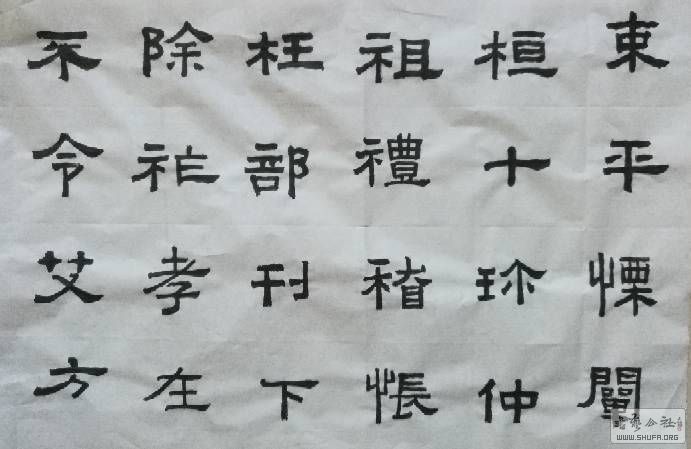 東平慄闈
桓十珎仲
祖禮稽悵
枉部刊下
除祚孝在
不令艾方
WWW.SHUFA.ORG